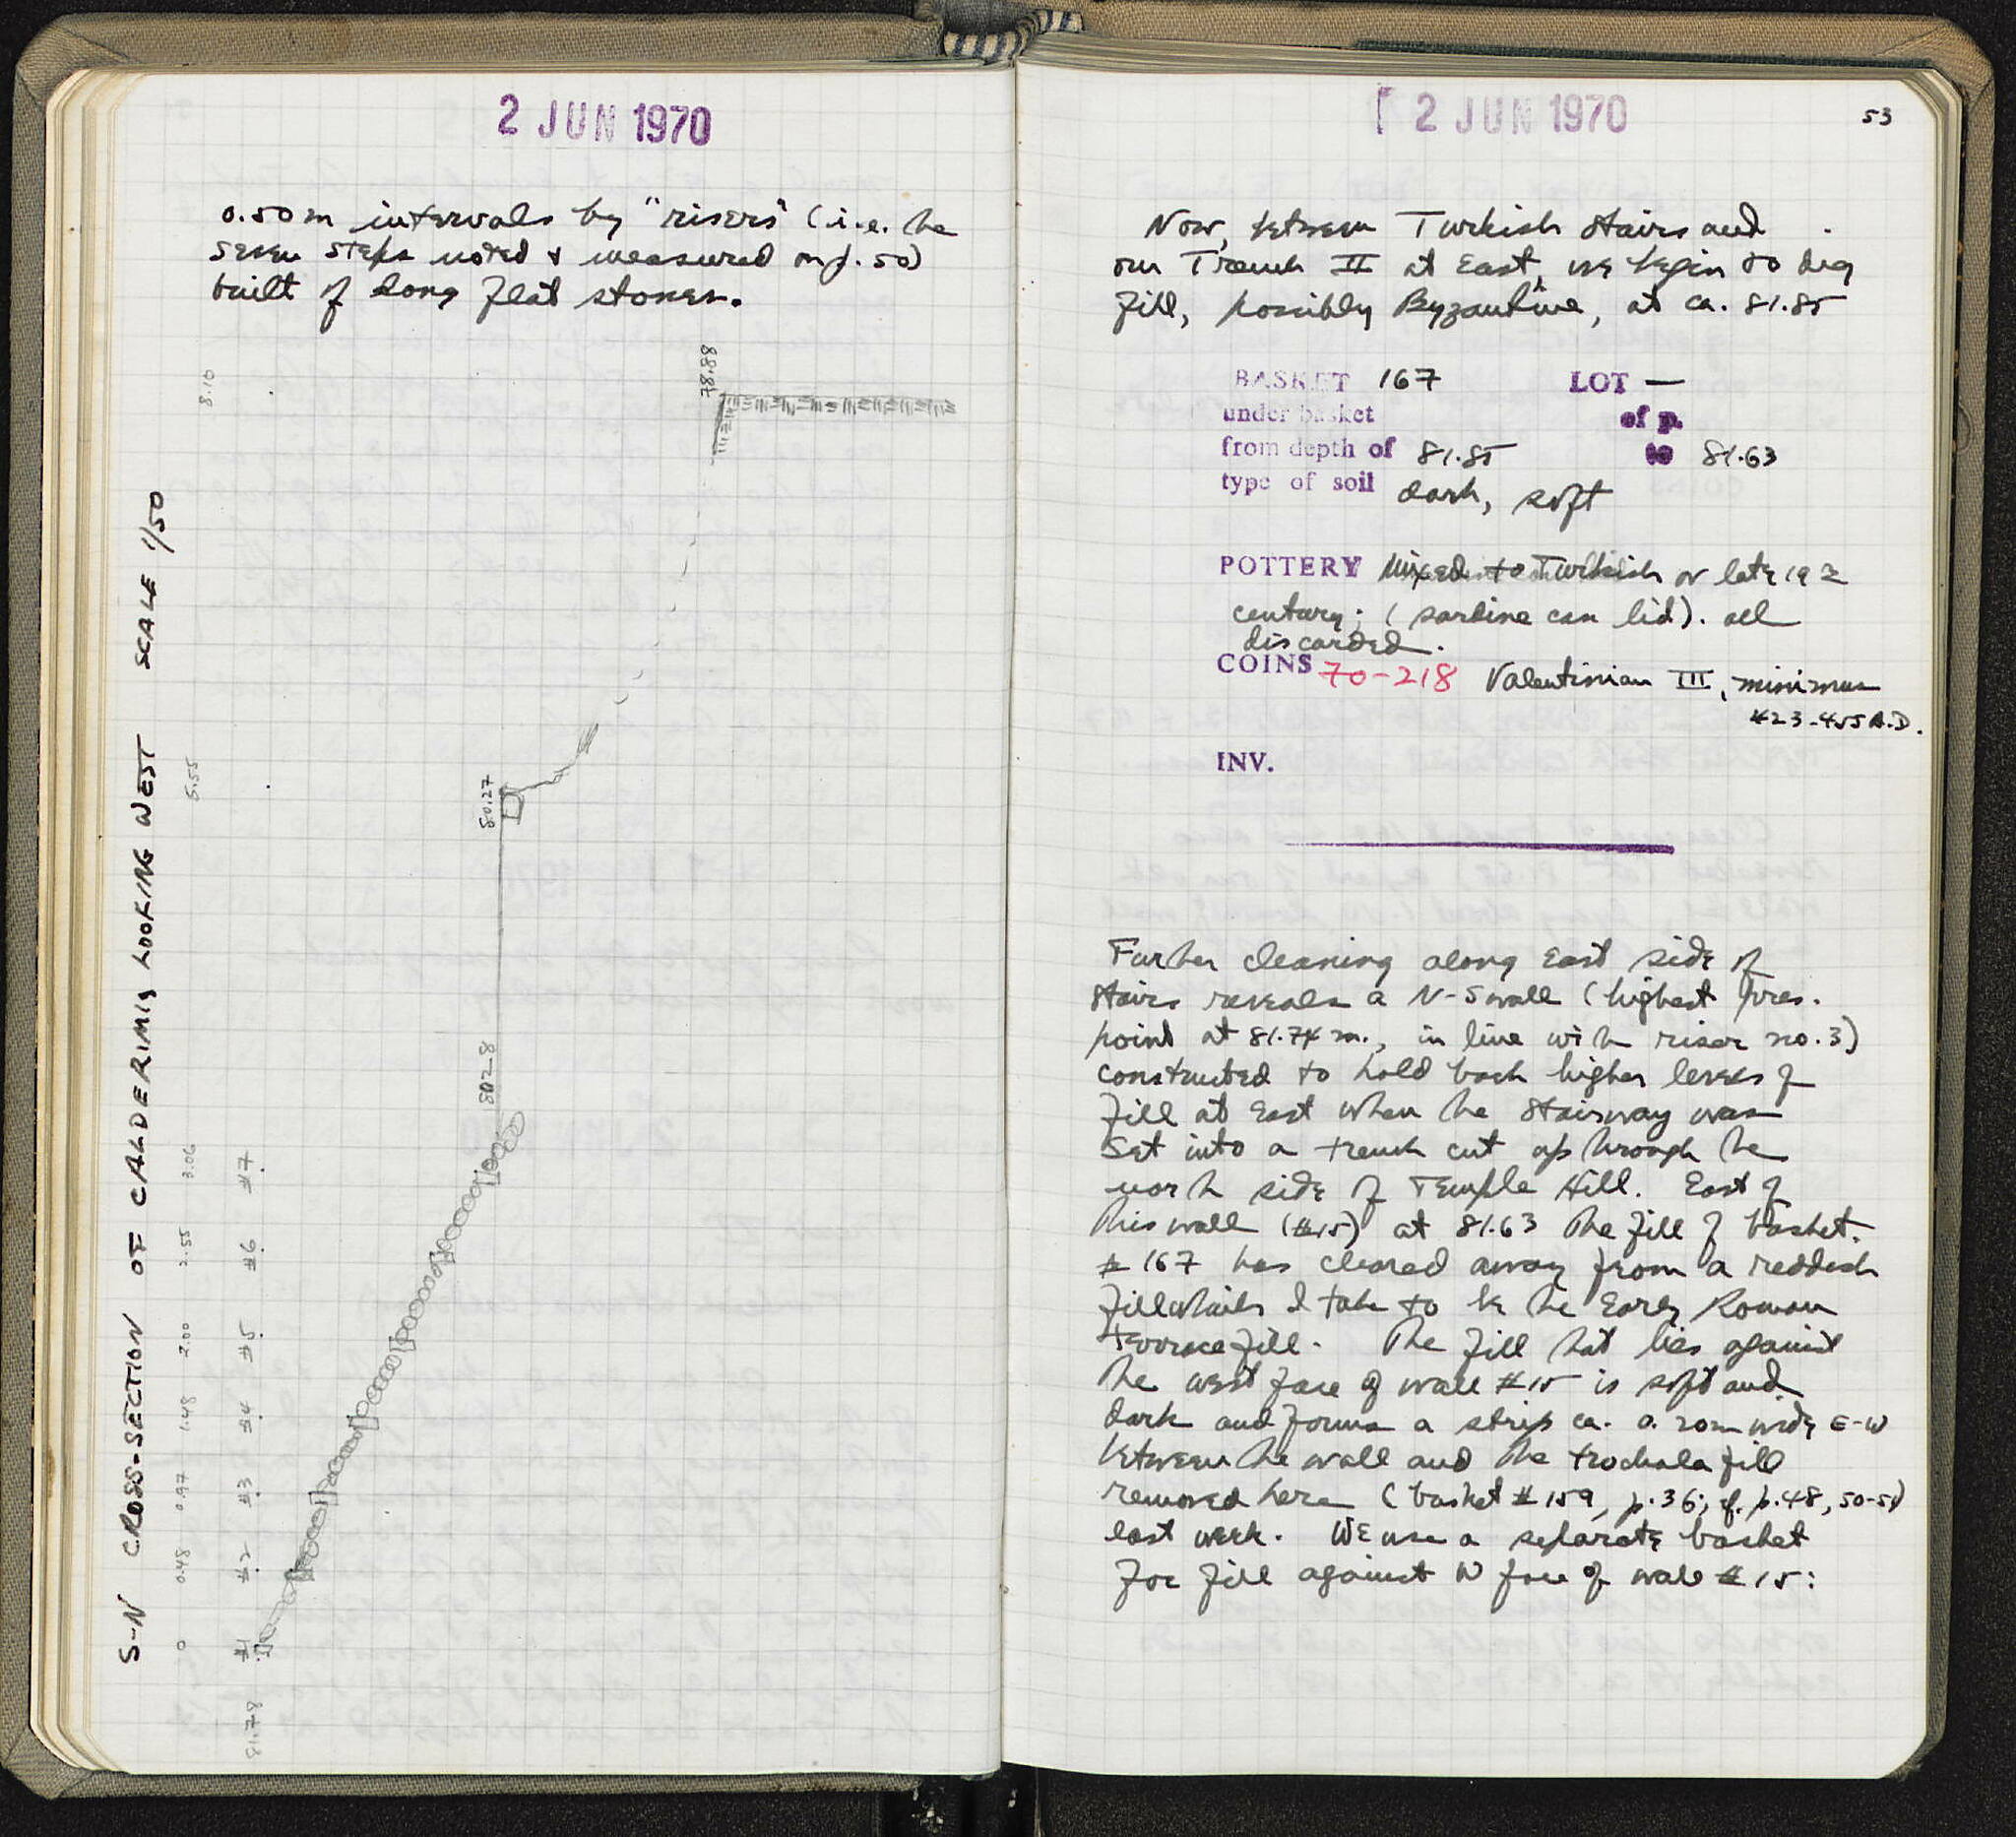 2 JUN 1970
0.50m intervals by "risers" (i.e. the
seven steps noted & measured on p. 50)
built of long flat stones.
S-N CROSS-SECTION OF CALDERIMI, LOOKING WEST SCALE 1/50
0 0.48 0.97 1.48 2.00 2.55 3.06 5.55 8.10
#1 #2 #3 #4 #5 #6 #7
81.78
80.27
78.88
2 JUN 1970
53
Now, between Turkish stairs and
our Trench II at East, we begin to dig
fill, possibly Byzantine, at ca. 81.85
BASKET 167 LOT —
under basket of p.
from depth of 81.85 to 81.63
type of soil dark, soft
POTTERY Mixed to Turkish or late 19th
century; (sardine can lid). all
discarded.
COINS 70-218 Valentinian III, minimus
423-455 A.D.
INV.
Further cleaning along East side of
stairs reveals a N-S wall (highest pres.
point at 81.74 m., in line with riser no. 3)
constructed to hold back higher levels of
fill at East when the stairway was
set into a trench cut up through the
north side of Temple Hill. East of
this wall (#15) at 81.63 the fill of basket
#167 has cleared away from a reddish
fill which I take to be the Early Roman
terrace fill. The fill that lies against
the west face of wall #15 is soft and
dark and forms a strip ca. 0.20m wide E-W
between the wall and the trochala fill
removed here (basket #159, p. 36; cf. p. 48, 50-51)
last week. We use a separate basket
for fill against W face of wall #15: